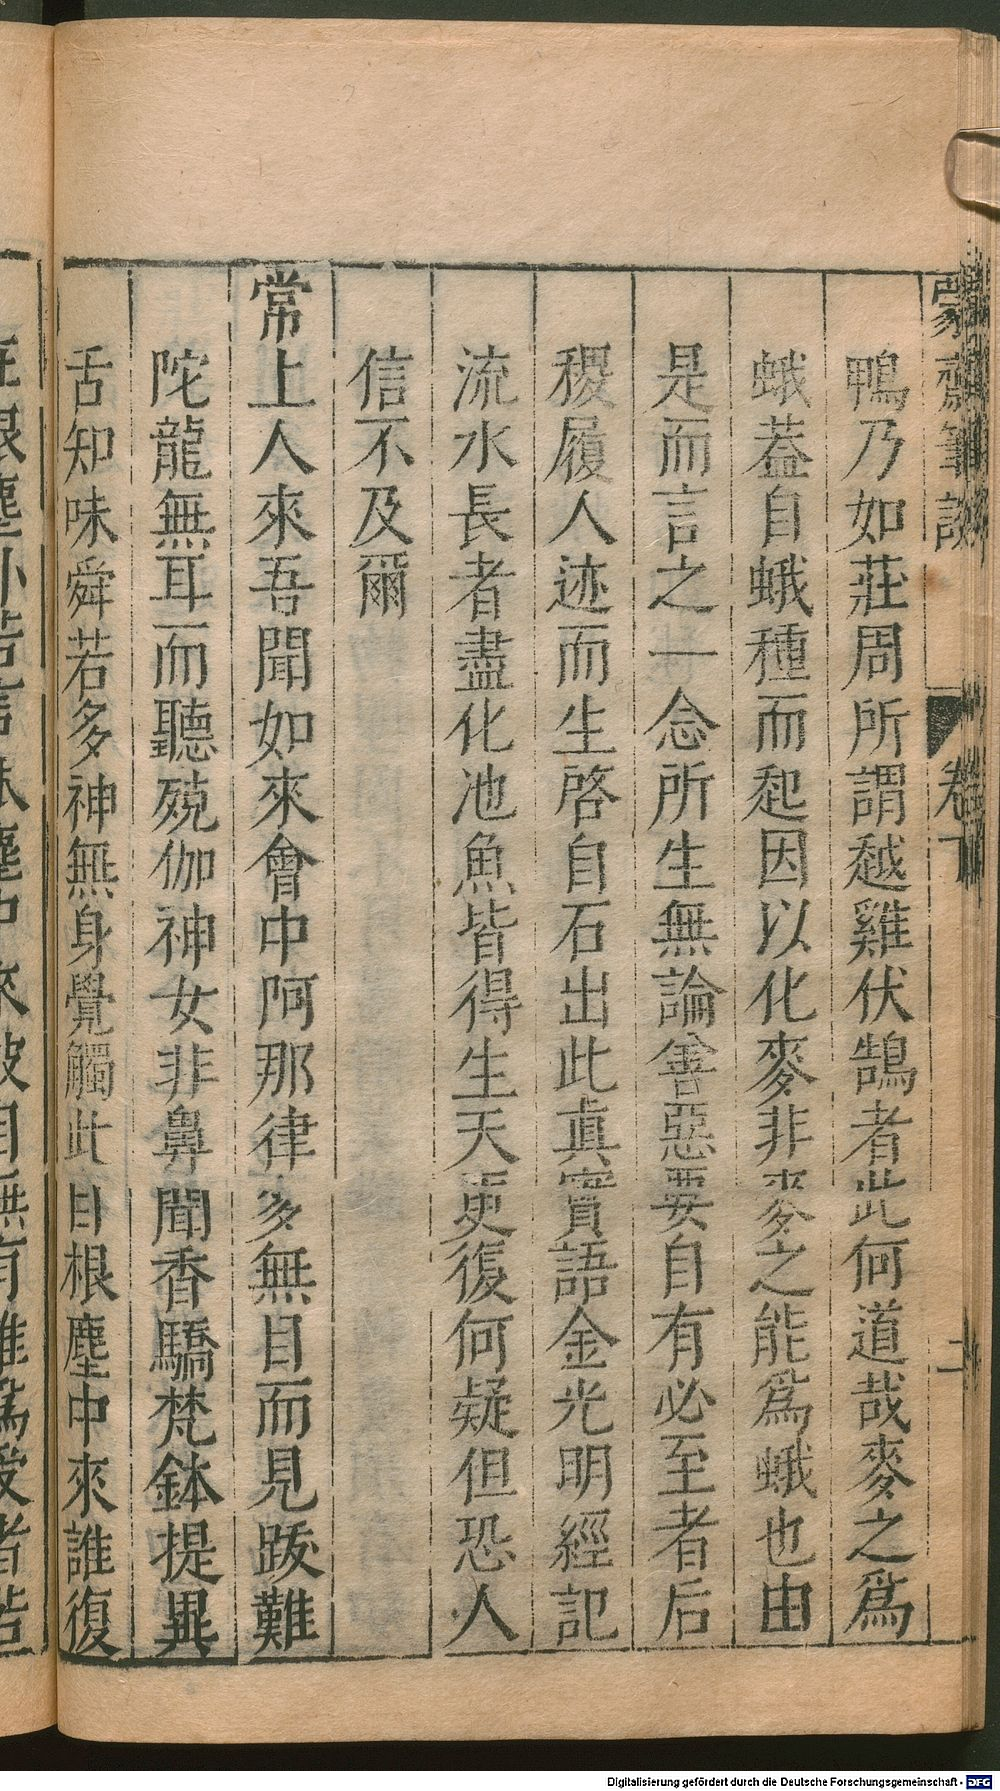 蒙齋筆談 卷下 二
鴨乃如莊周所謂越雞伏鵠者此何道哉麥之爲
蛾蓋自蛾種而起因以化麥非麥之能爲蛾也由
是而言之一念所生無論善惡要自有必至者后
稷履人迹而生啓自石出此真實語金光明經記
流水長者盡化池魚皆得生天更復何疑但恐人
信不及爾
常上人來吾聞如來會中阿那律多無目而見跋難
陀龍無耳而聽殑伽神女非鼻聞香驕梵鉢提異
舌知味舜若多神無身覺觸此自根塵中來誰復
Digitalisierung gefördert durch die Deutsche Forschungsgemeinschaft - DFG